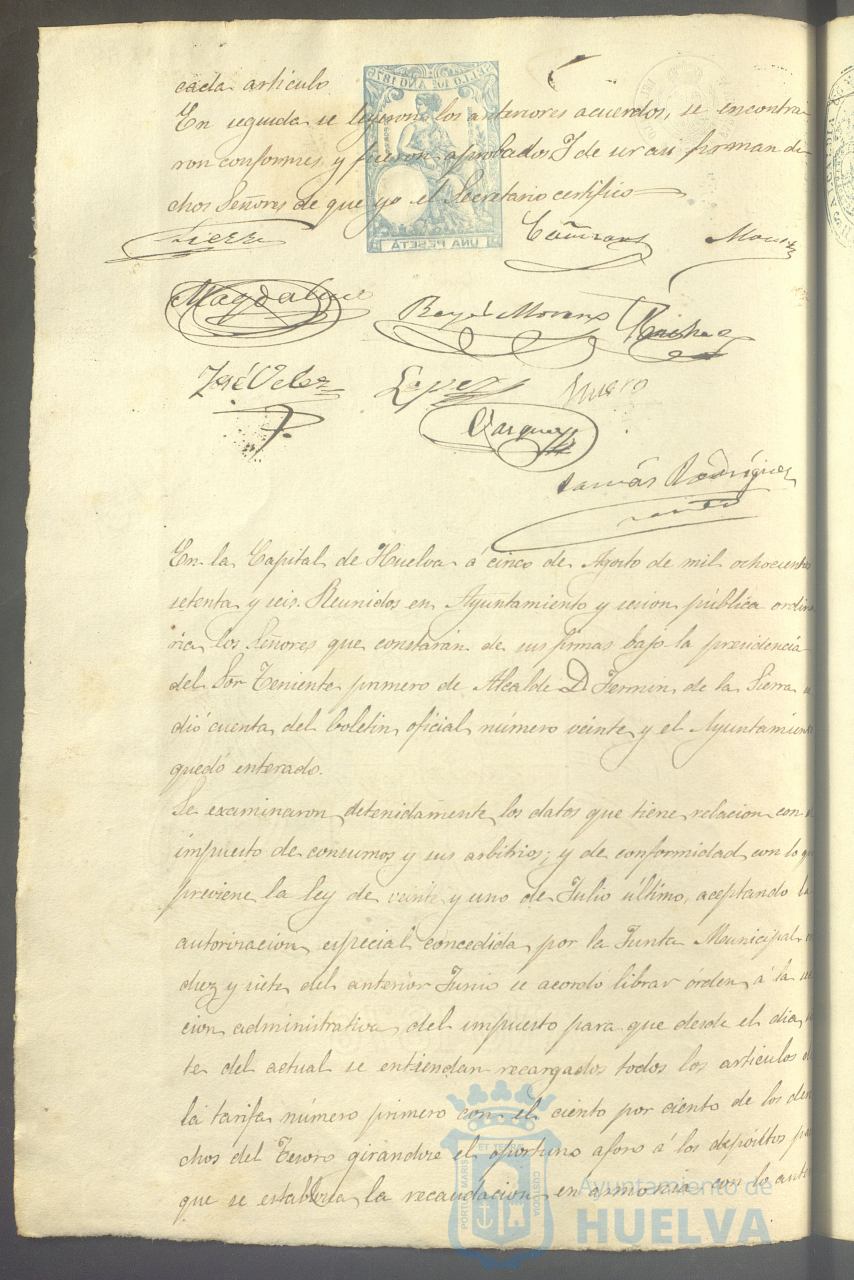 cada artículo.
En seguida se leyeron los anteriores acuerdos, se encontra-
ron conformes y fueron aprobados. Y de ser así firman di-
chos Señores de que yo el Secretario certifico
SELLO 10º AÑO 1876
UNA PESETA
Magdalena
José Velez
Lopez
Vazquez
Tomás Rodriguez
En la Capital de Huelva á cinco de Agosto de mil ochocientos
setenta y seis. Reunidos en Ayuntamiento y sesion pública ordina
ria, los Señores que constarán de sus firmas bajo la presidencia
del Sor Teniente primero de Alcalde D. Fermin de la Sierra, se
dió cuenta del boletin oficial número veinte y el Ayuntamiento
quedó enterado.
Se examinaron detenidamente los datos que tiene relacion con el
impuesto de consumos y sus arbitrios; y de conformidad con lo que
previene la ley de veinte y uno de Julio último, aceptando la
autorizacion especial concedida por la Junta Municipal en
diez y siete del anterior Junio se acordó librar órden á la sec
cion administrativa del impuesto para que desde el dia
te del actual se entiendan recargados todos los articulos de
la tarifa número primero con el ciento por ciento de los dere
chos del Tesoro girándose el oportuno aforo á los depósitos para
que se establezca la recaudacion en armonía con lo ante
PORTUS MARIS ET TERRAE CUSTODIA
Ayuntamiento de
HUELVA